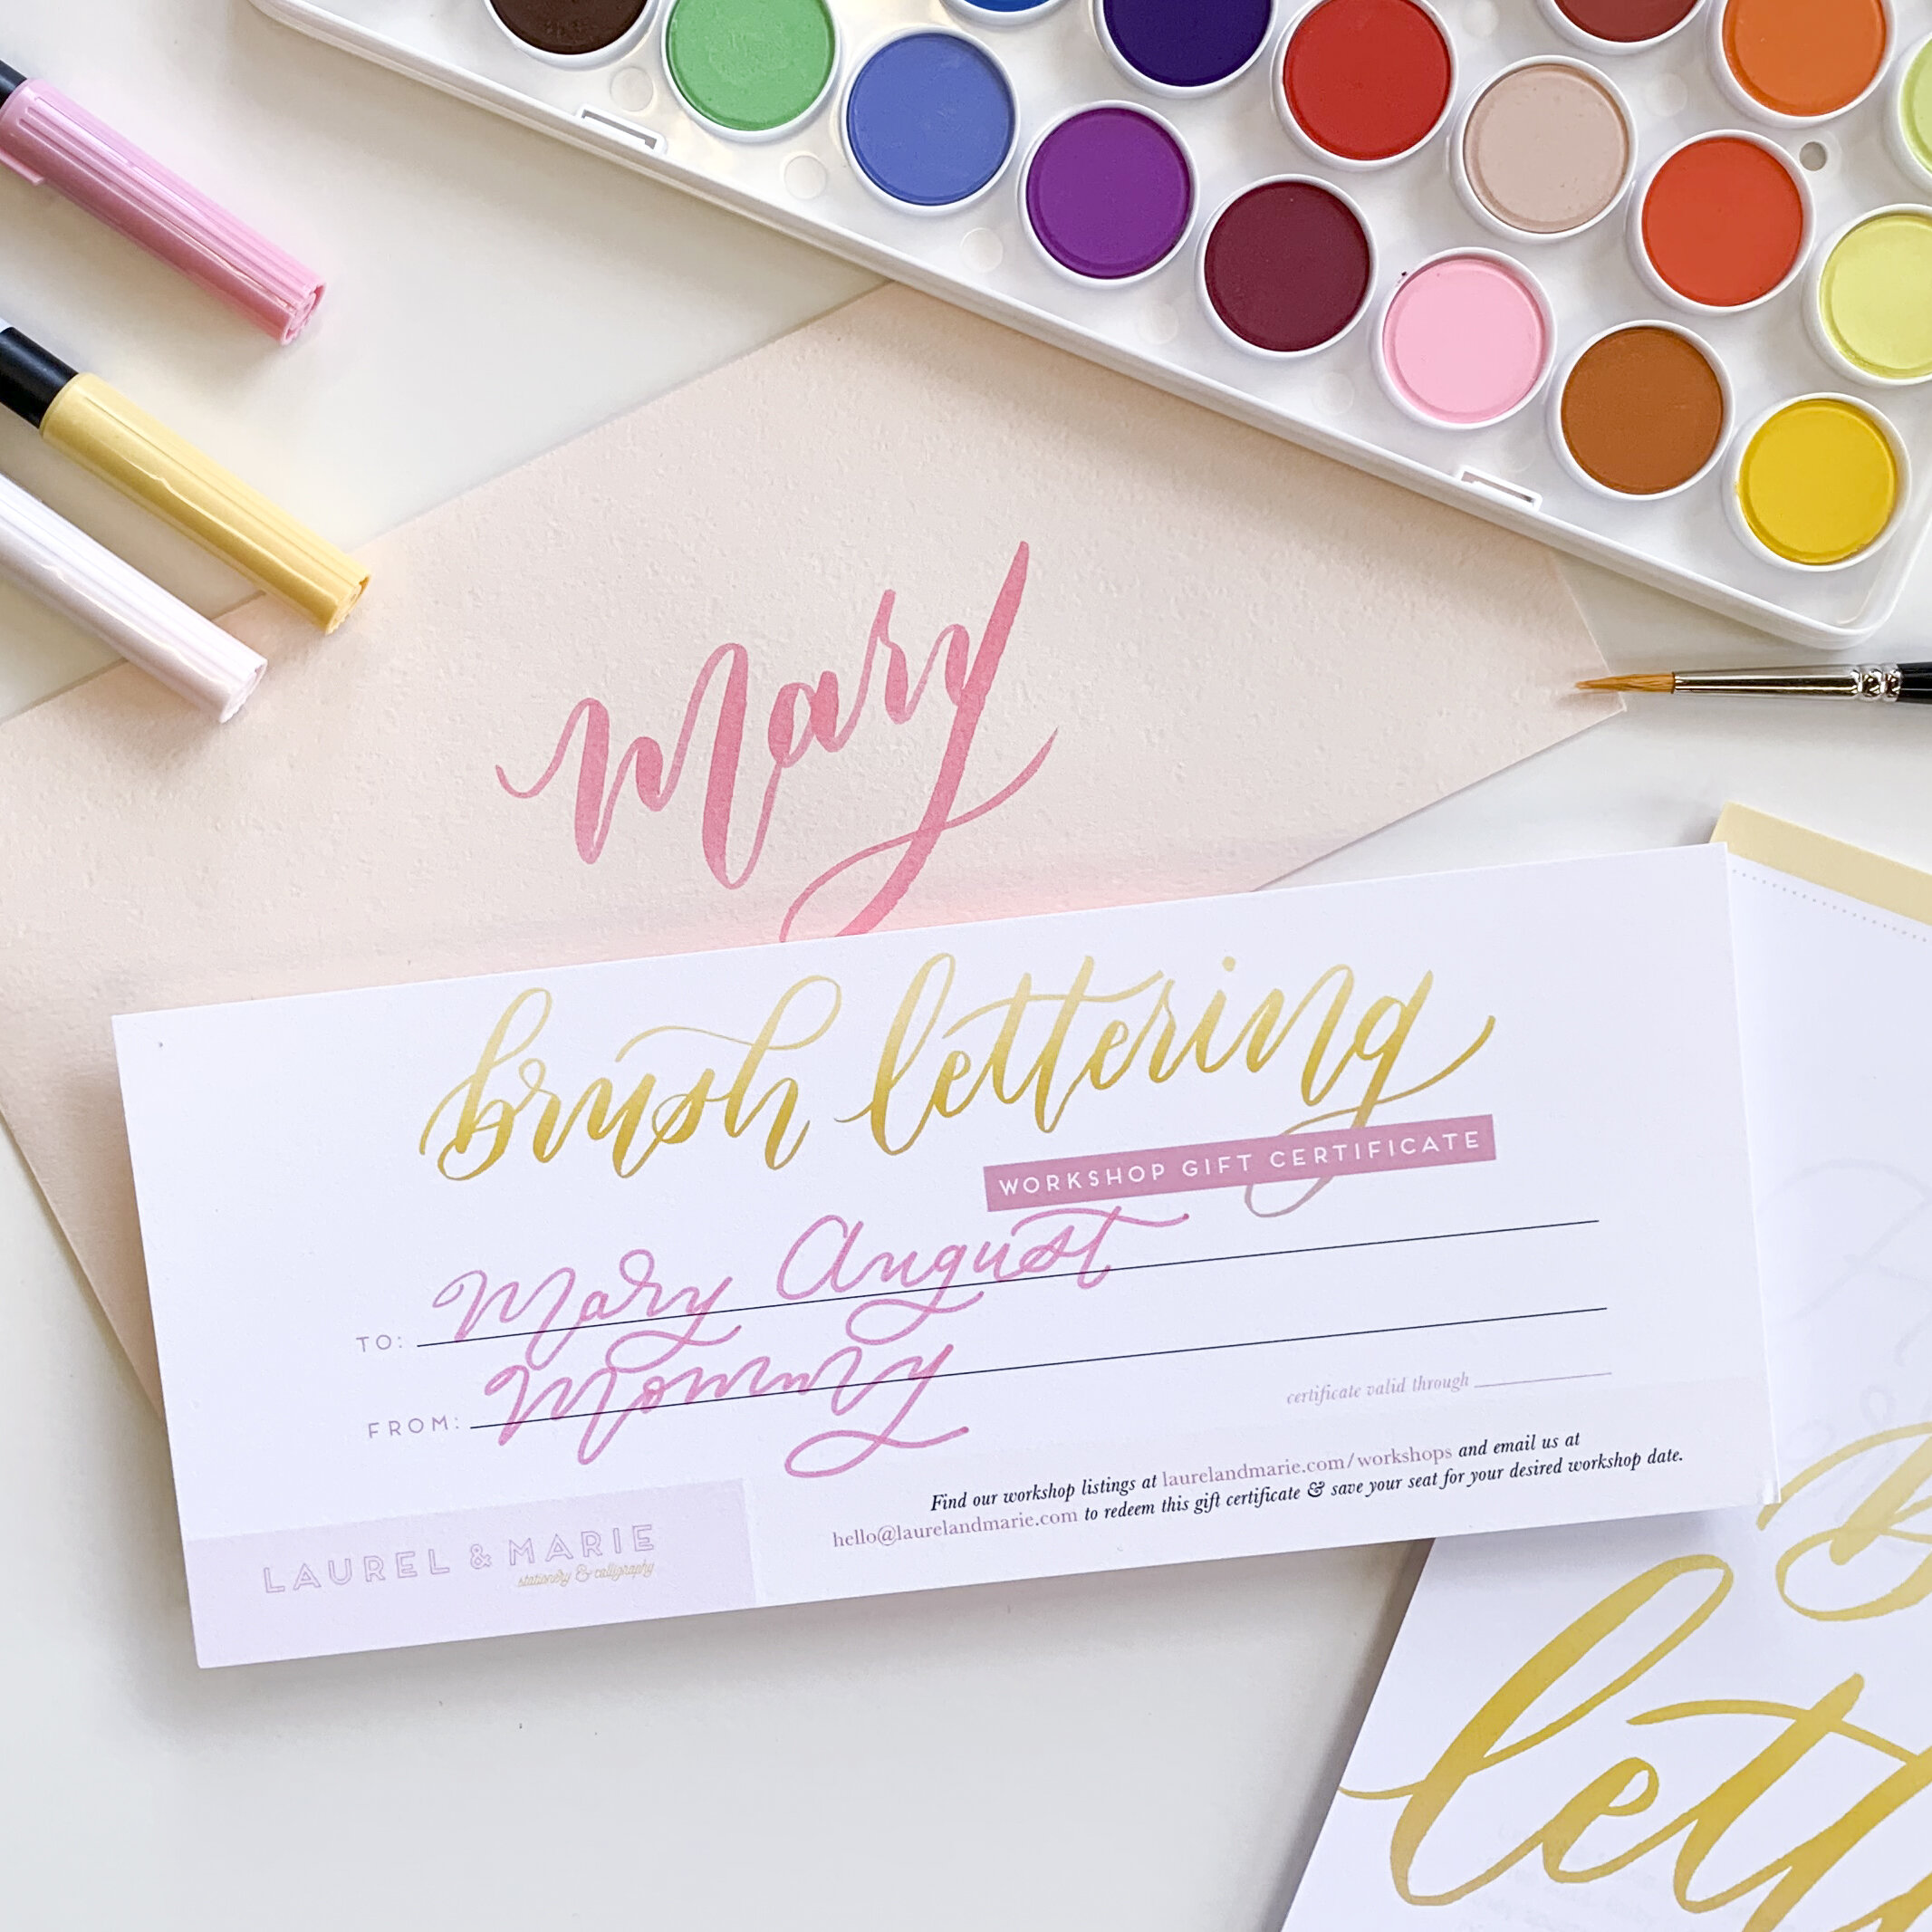 Mary
brush lettering
WORKSHOP GIFT CERTIFICATE
TO: Mary August
FROM: Mommy
certificate valid through
Find our workshop listings at laurelandmarie.com/workshops and email us at
hello@laurelandmarie.com to redeem this gift certificate & save your seat for your desired workshop date.
LAUREL & MARIE
stationery & calligraphy
B
lett